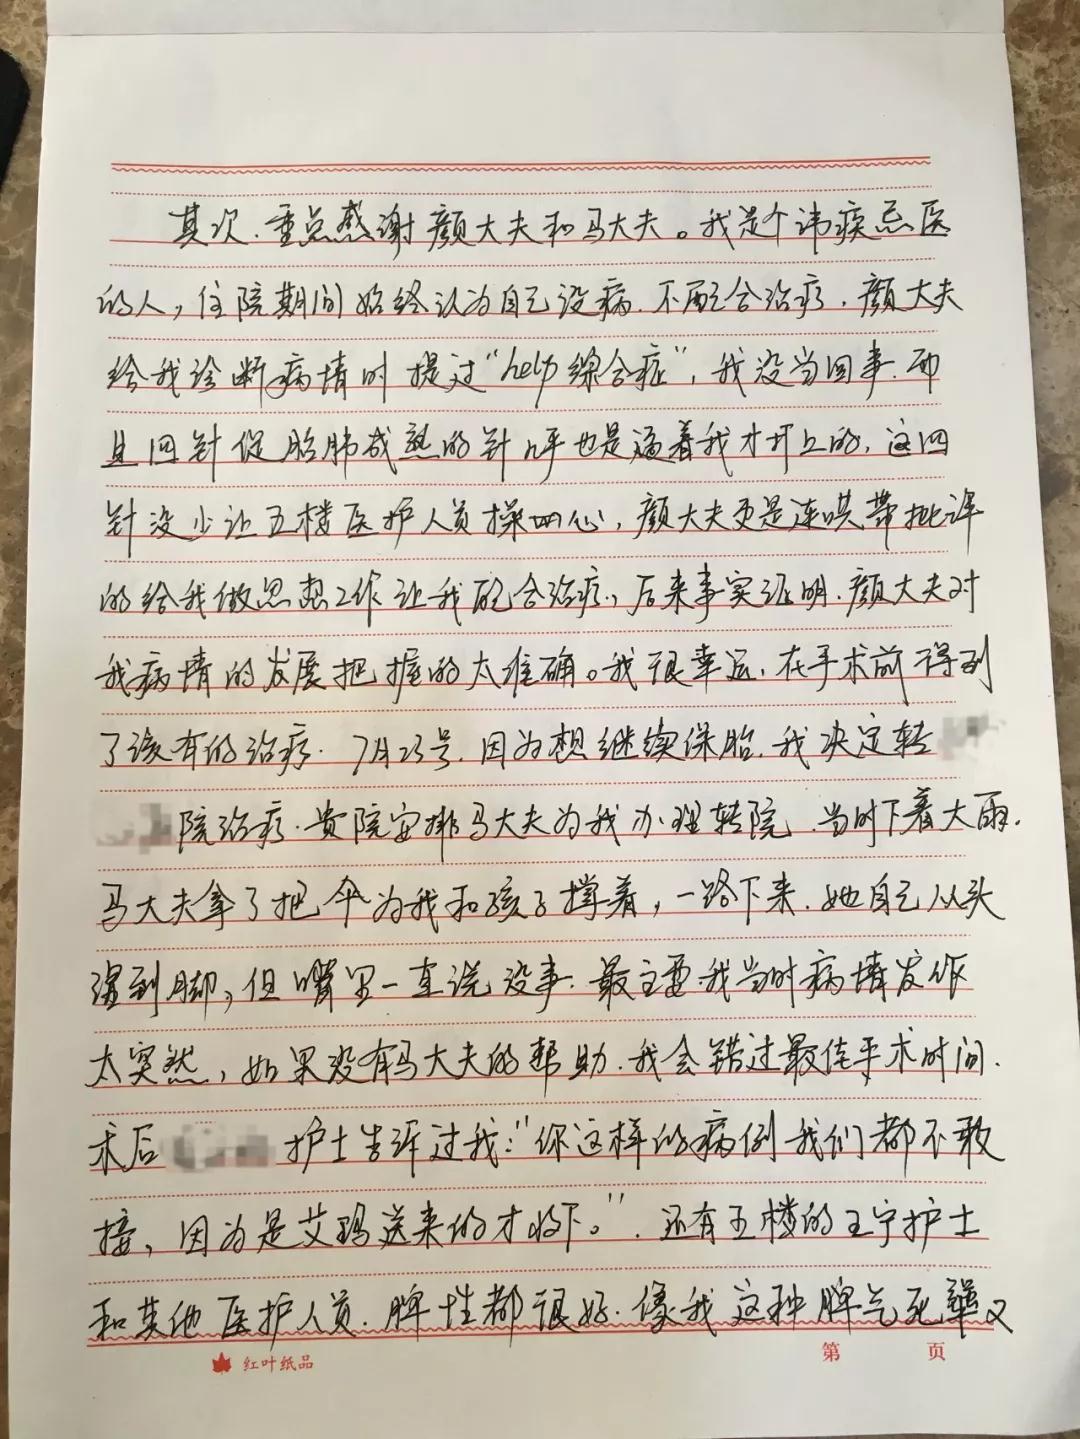 其次.重点感谢颜大夫和马大夫。我是个讳疾忌医
的人，住院期间始终认为自己没病.不配合治疗.颜大夫
给我诊断病情时提过“help综合症”，我没当回事.而
且四针促胎肺成熟的针几乎也是逼着我才打上的，这四
针没少让五楼医护人员操心，颜大夫更是连哄带批评
的给我做思想工作让我配合治疗.，后来事实证明.颜大夫对
我病情的发展把握的太准确。我很幸运.在手术前得到
了该有的治疗.7月23号.因为想继续保胎.我决定转
院治疗.贵院安排马大夫为我办理转院.当时下着大雨.
马大夫拿了把伞为我和孩子撑着，一路下来.她自己从头
湿到脚，但嘴里一直说没事.最主要.我当时病情发作
太突然，如果没有马大夫的帮助.我会错过最佳手术时间.
术后 护士告诉过我：“你这样的病例我们都不敢
接，因为是艾玛送来的才收下。”.还有五楼的王宁护士
和其他医护人员.脾性都很好.像我这种脾气死犟又
红叶纸品 第 页